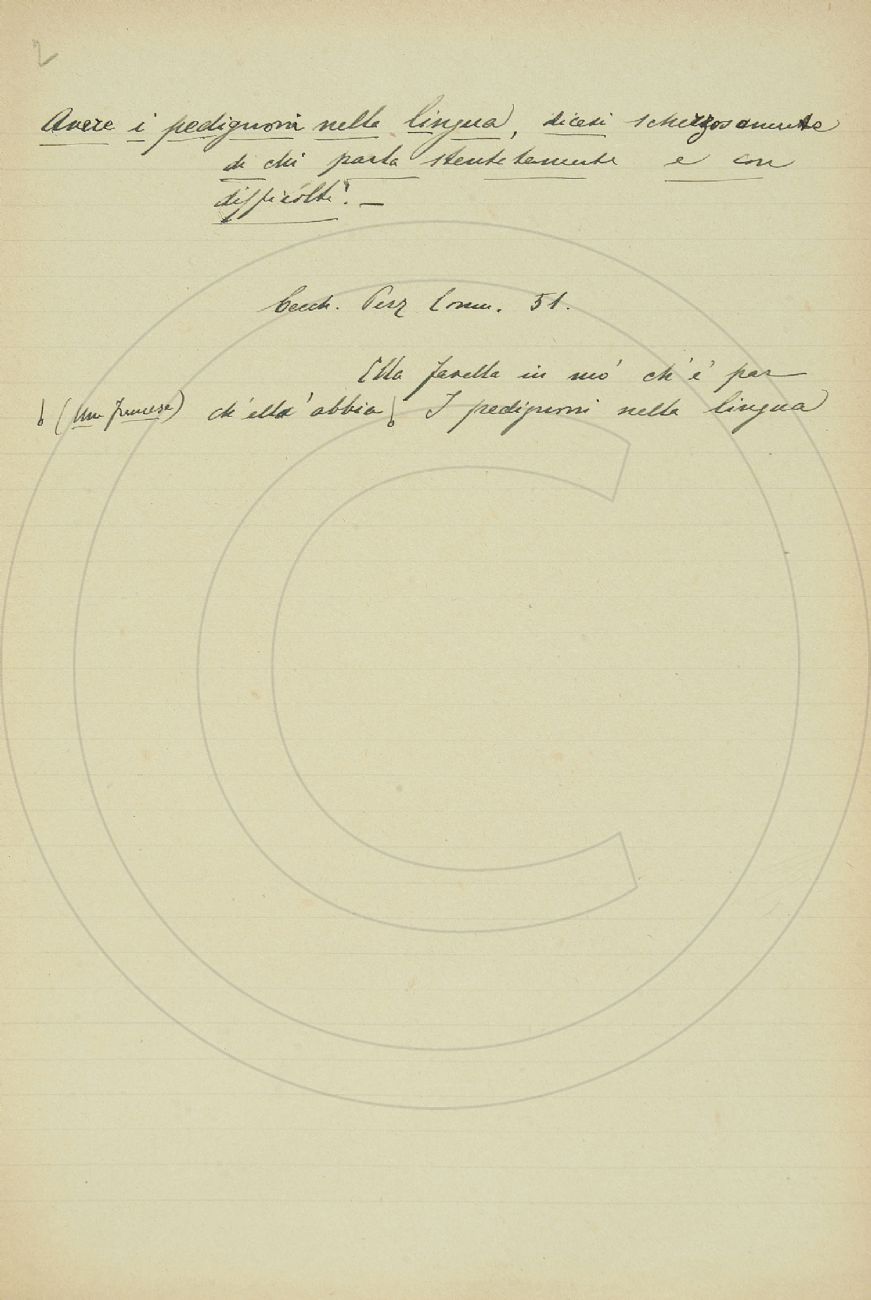 2
Avere i pedignoni nella lingua, dicesi scherzosamente
di chi parla stentatamente e con
difficoltà. —
Cecch. Perz Comm. 51.
Ella favella in mo' ch'e' par
(Una francese) ch'ella abbia I pedignoni nella lingua